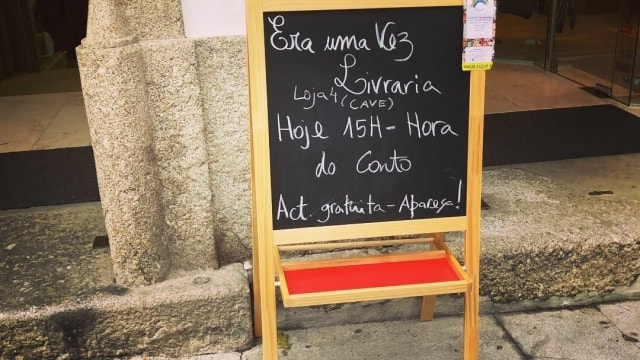 Era uma Vez
Livraria
Loja 4 (CAVE)
Hoje 15H - Hora
do Conto
Act. gratuita - Apareça!